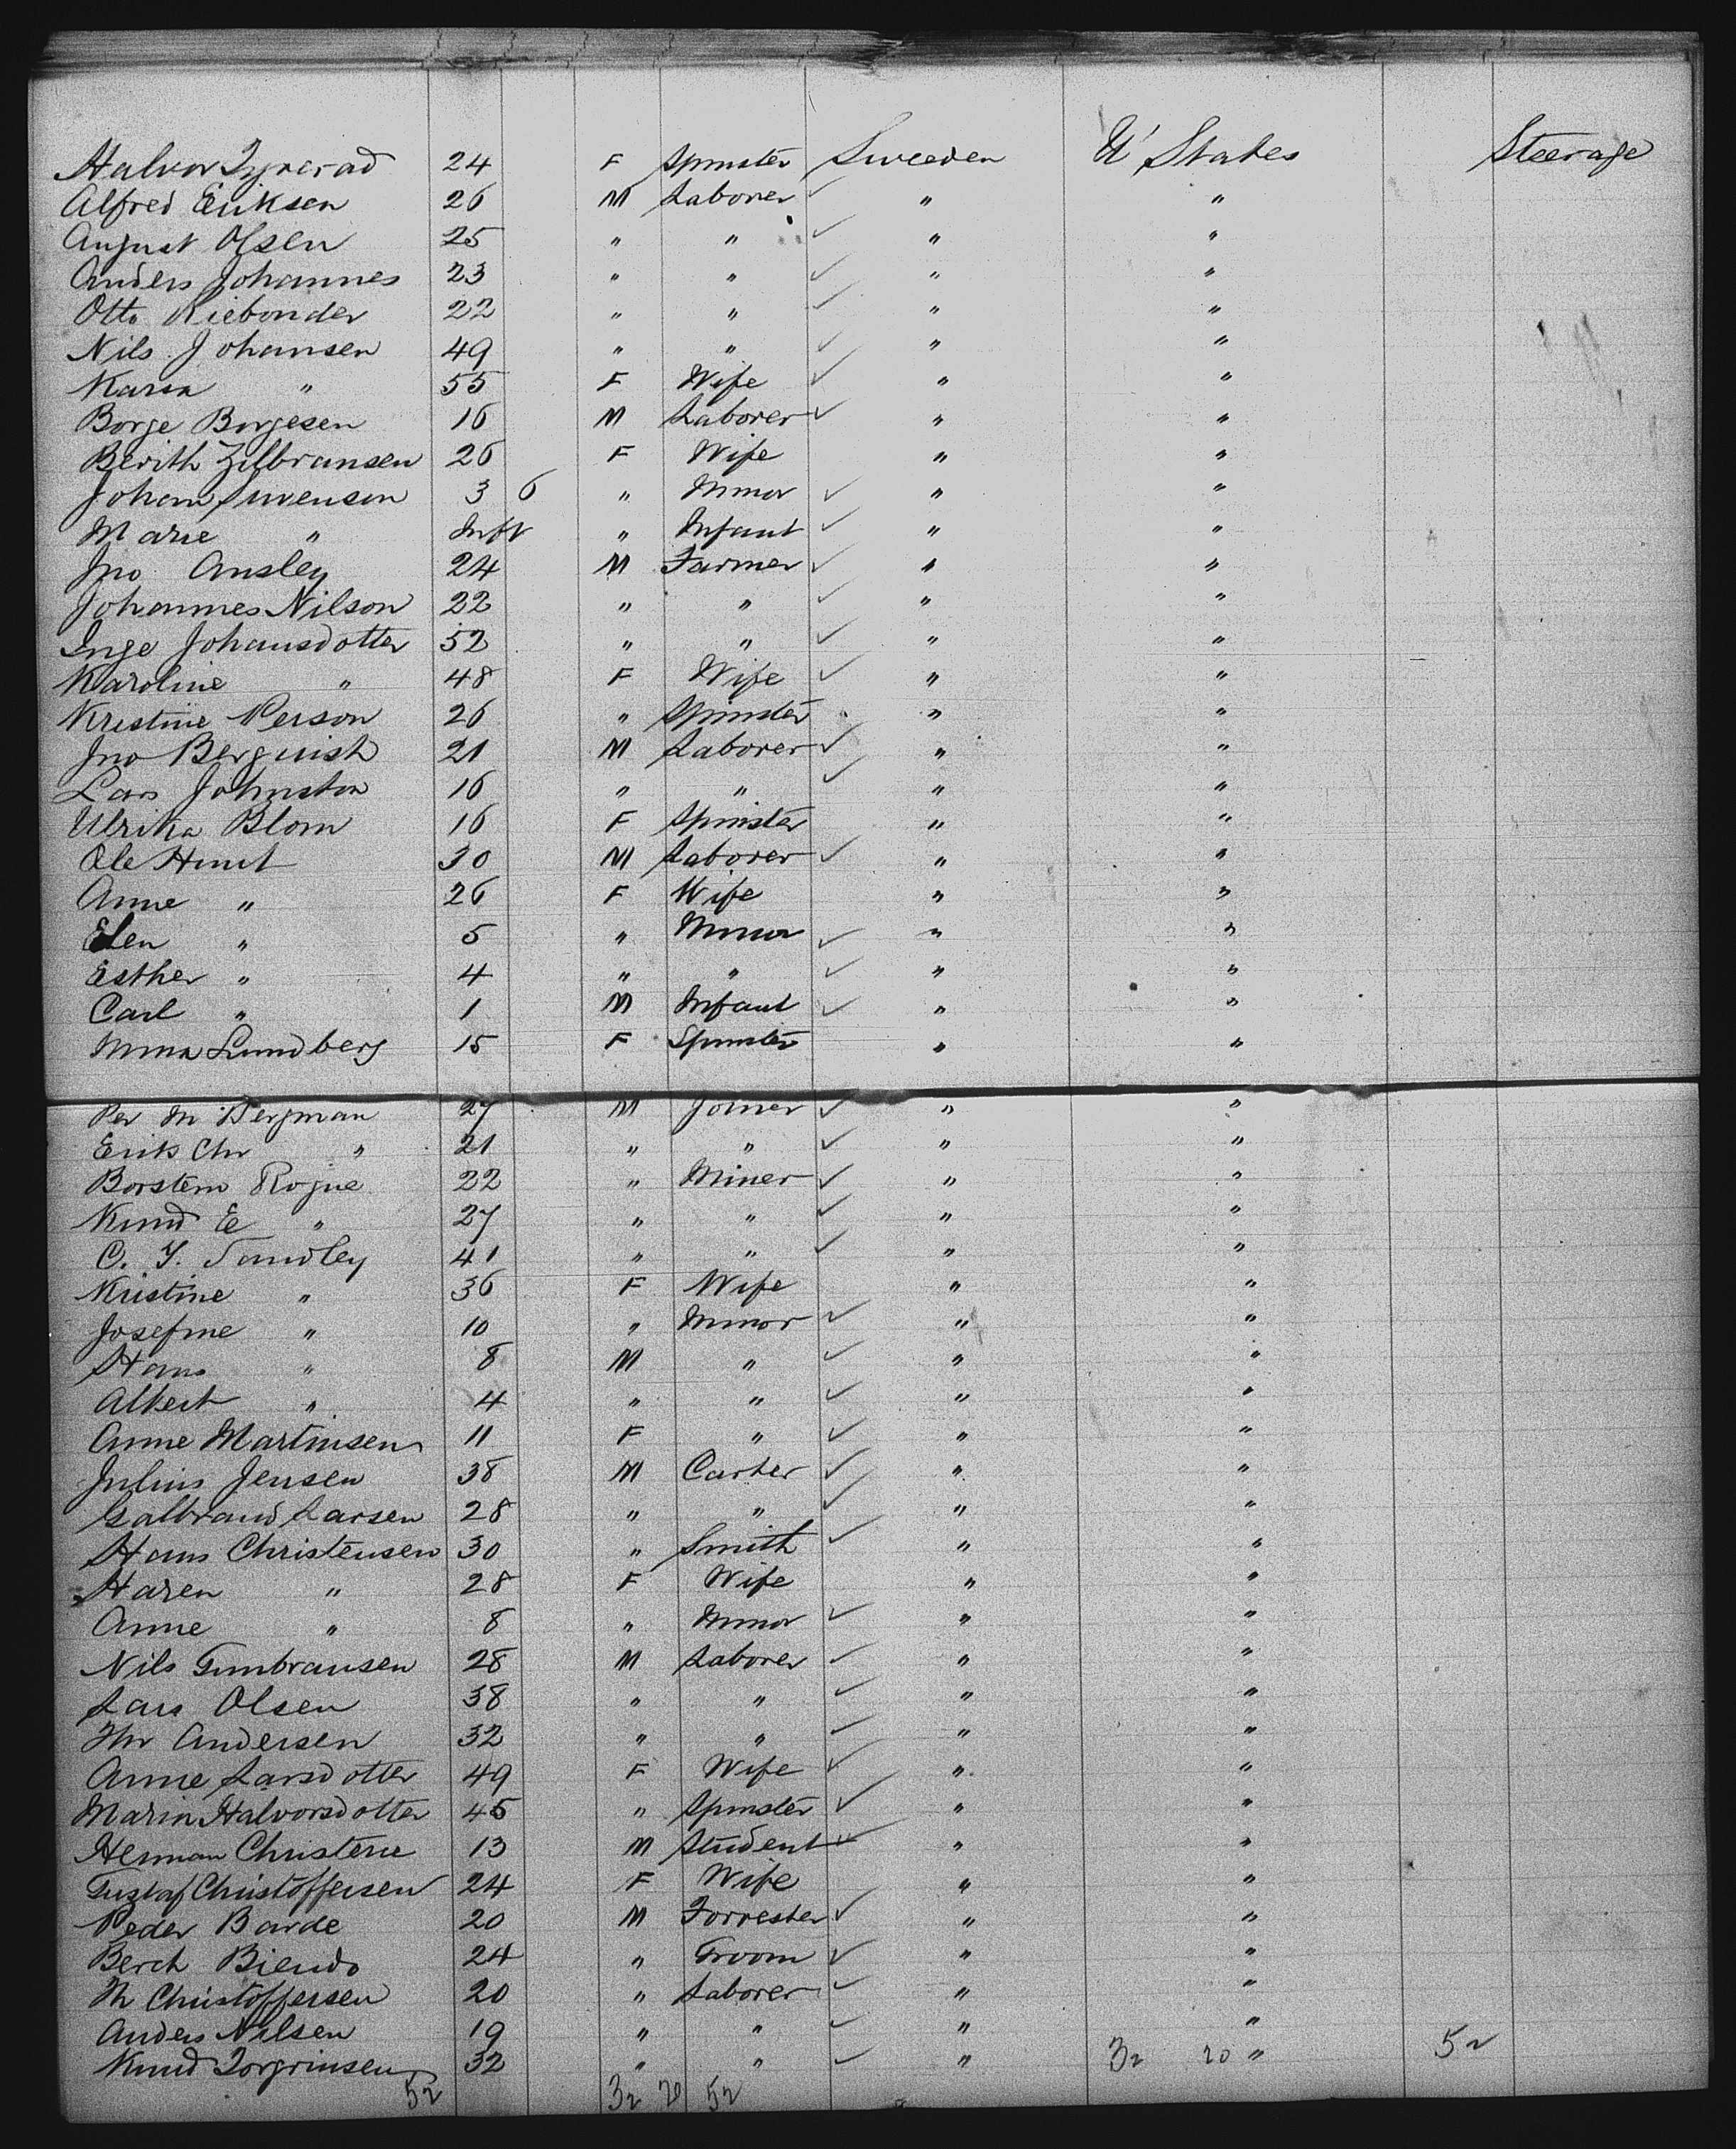 Halvor Tyverad 24 F Spinster Sweeden U' States Steerage
Alfred Eriksen 26 M Laborer ✓ " "
August Olsen 25 " " ✓ " "
Anders Johannes 23 " " ✓ " "
Otto Kiebonder 22 " " ✓ " "
Nils Johansen 49 " " ✓ " "
Karin " 55 F Wife ✓ " "
Borge Borgesen 16 M Laborer ✓ " "
Berith Zilbransen 26 F Wife " "
Johan Svensen 3 6 " Minor ✓ " "
Marie " Inft " Infant ✓ " "
Jno Ansley 24 M Farmer ✓ " "
Johannes Nilson 22 " " ✓ " "
Inge Johansdotter 52 " " ✓ " "
Karoline " 48 F Wife ✓ " "
Kristine Person 26 " Spinster " "
Jno Berquish 21 M Laborer ✓ " "
Lars Johnston 16 " " ✓ " "
Ulrika Blom 16 F Spinster " "
Ole Hunt 30 M Laborer ✓ " "
Anne " 26 F Wife " "
Elen " 5 " Minor ✓ " "
Esther " 4 " " ✓ " "
Carl " 1 M Infant ✓ " "
Mina Lundberg 15 F Spinster " "
Per M Bergman 27 M Joiner ✓ " "
Erik Chr " 21 " " ✓ " "
Borstein Rogne 22 " Miner ✓ " "
Knud E " 27 " " ✓ " "
C. J. Sandley 41 " " ✓ " "
Kristine " 36 F Wife " "
Josefine " 10 " Minor ✓ " "
Hans " 8 M " ✓ " "
Albert " 4 " " ✓ " "
Anne Martinsen 11 F " ✓ " "
Julius Jensen 38 M Carter ✓ " "
Galbrand Larsen 28 " " ✓ " "
Hans Christensen 30 " Smith ✓ " "
Haren " 28 F Wife " "
Anne " 8 " Minor ✓ " "
Nils Gunbransen 28 M Laborer ✓ " "
Lars Olsen 38 " " ✓ " "
Andersen 32 " " ✓ " "
Anne Larsdotter 49 F Wife ✓ " "
Marin Halvorsdotter 45 " Spinster ✓ " "
Herman Christene 13 M Student ✓ " "
Gustaf Christoffersen 24 F Wife " "
Peder Barde 20 M Forrester ✓ " "
Berch Biendo 24 " Groom ✓ " "
M Christoffersen 20 " Laborer ✓ " "
Anders Nilsen 19 " " ✓ " "
Knud Torgrinsen 32 " " ✓ " 32 20 " 52
52 32 20 52